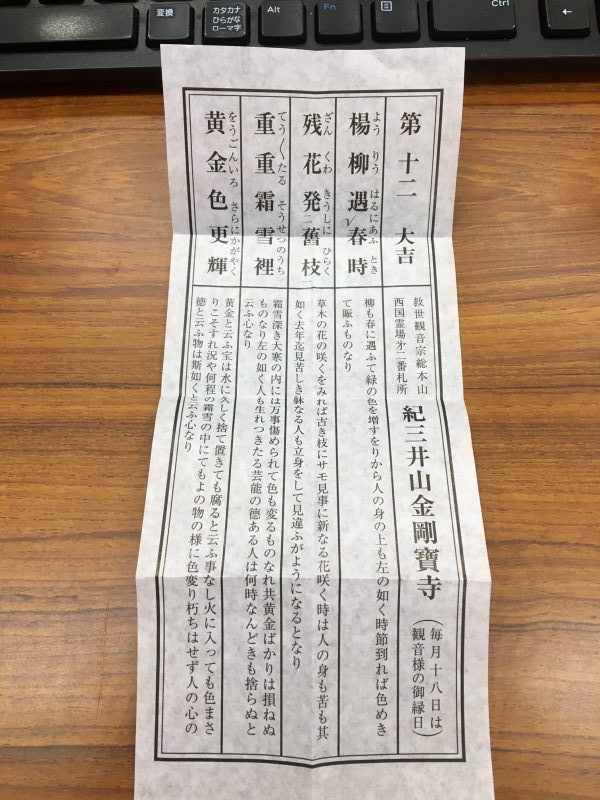 変換
カタカナ
ひらがな
ローマ字
Alt
Fn
Ctrl
第十二 大吉
救世観音宗総本山
西国霊場第二番札所
紀三井山金剛寶寺
(毎月十八日は
観音様の御縁日)
よう りう はるにあふ とき
楊柳遇レ春時
柳も春に遇ふて緑の色を増すをりから人の身の上も左の如く時節到れば色めき
て賑ふものなり
ざん くわ きうしに ひらく
残花発二舊枝一
草木の花の咲くをみれば古き枝にサモ見事に新なる花咲く時は人の身も苦も其
如く去年迄見苦しき躰なる人も立身をして見違ふがようになるとなり
てう〳〵たる そうせつのうち
重重霜雪裡
霜雪深き大寒の内には万事傷められて色も変るものなれ共黄金ばかりは損ねぬ
ものなり左の如く人も生れつきたる芸能の徳ある人は何時なんどきも捨らぬと
云ふ心なり
をうごんいろ さらにかがやく
黄金色更輝
黄金と云ふ宝は水に久しく捨て置きても腐ると云ふ事なし火に入っても色まさ
りこそすれ況や何程の霜雪の中にてもよの物の様に色変り朽ちはせず人の心の
徳と云ふ物は斯如くと云ふ心なり